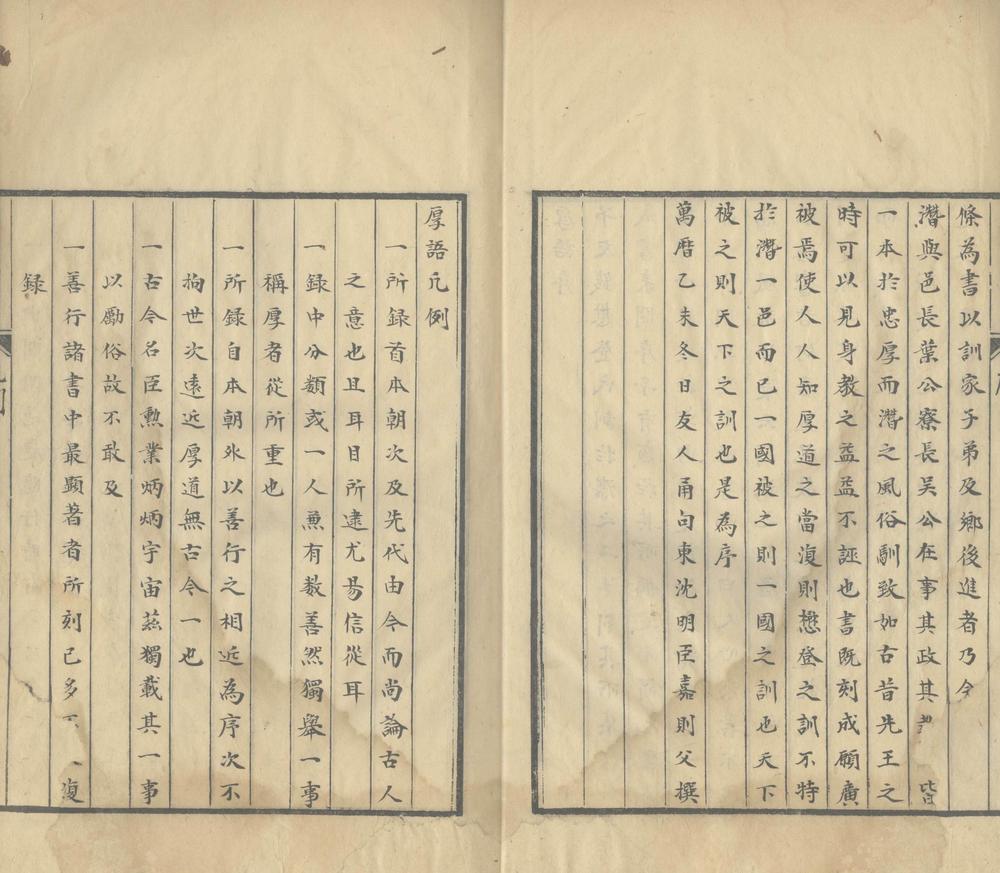 條為書以訓家子弟及鄉後進者乃今
濳與邑長葉公寮長吴公在事其政其皆
一本於忠厚而濳之風俗馴致如古昔先王之
時可以見身教之益益不誣也書既刻成願廣
被焉使人人知厚道之當復則懋登之訓不特
於濳一邑而已一國被之則一國之訓也天下
被之則天下之訓也是為序
萬曆乙未冬日友人甬句東沈明臣嘉則父撰
厚語凡例
一所録首本朝次及先代由今而尚論古人
之意也且耳目所逮尤昜信從耳
一録中分類或一人兼有数善然獨舉一事
稱厚者從所重也
一所録自本朝外以善行之相近為序次不
拘世次遠近厚道無古今一也
一古今名臣勲業炳炳宇宙兹獨載其一事
以勵俗故不敢及
一善行諸書中最顯著者所刻已多復
録